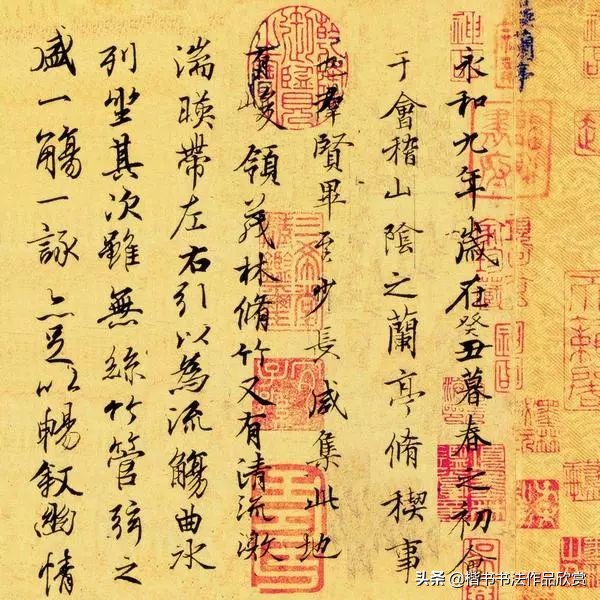 永和九年歲在癸丑暮春之初會
于會稽山陰之蘭亭脩稧事
也羣賢畢至少長咸集此地
有崇山峻領茂林脩竹又有清流激
湍暎帶左右引以為流觴曲水
列坐其次雖無絲竹管弦之
盛一觴一詠亦足以暢敘幽情
蘭亭
头条 @楷书书法作品欣赏